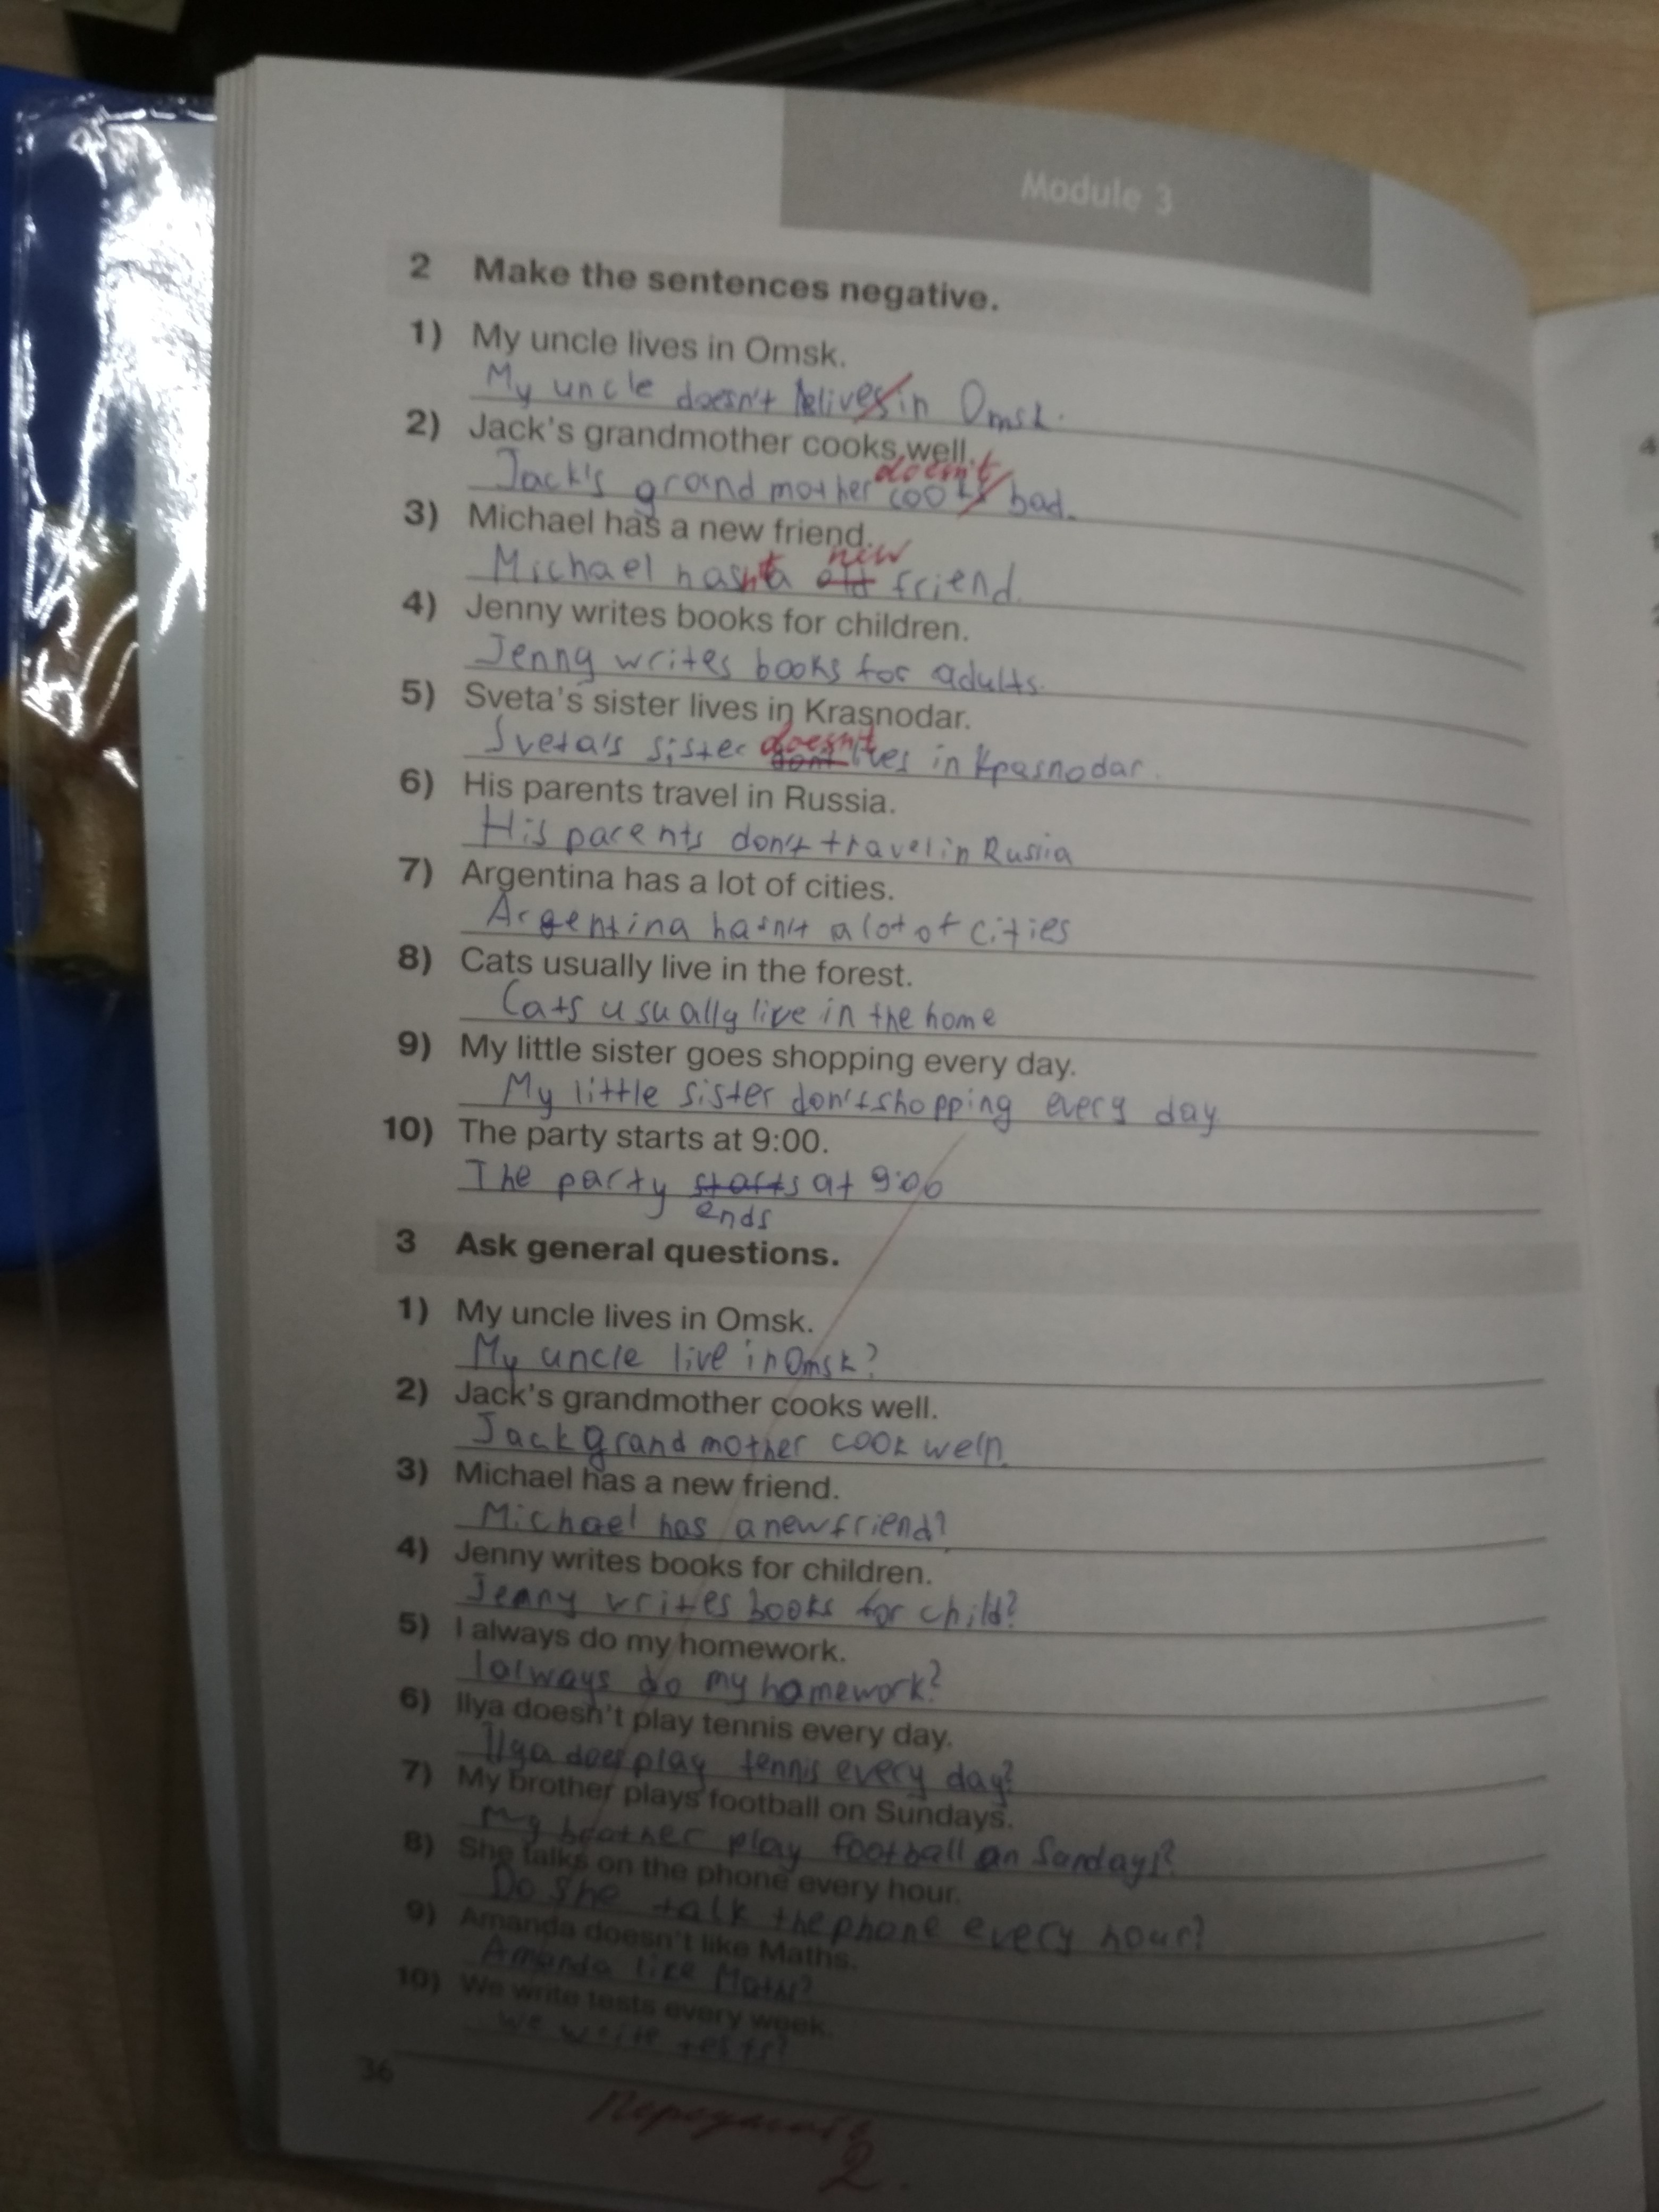 Module 3
2 Make the sentences negative.
1) My uncle lives in Omsk.
My uncle doesn't lives in Omsk.
2) Jack's grandmother cooks well.
doesn't
Jack's grandmother cooks bad.
3) Michael has a new friend.
new
Michael hasn't a old friend.
4) Jenny writes books for children.
Jenny writes books for adults.
5) Sveta's sister lives in Krasnodar.
doesn't
Sveta's sister dont lives in Kpasnodar.
6) His parents travel in Russia.
His parents don't travel in Russia
7) Argentina has a lot of cities.
Argentina hasn't a lot of cities
8) Cats usually live in the forest.
Cats usually live in the home
9) My little sister goes shopping every day.
My little sister don't shopping every day
10) The party starts at 9:00.
The party starts at 9:00
ends
3 Ask general questions.
1) My uncle lives in Omsk.
My uncle live in Omsk?
2) Jack's grandmother cooks well.
Jack grandmother cook
3) Michael has a new friend.
Michael has a new friend?
4) Jenny writes books for children.
Jenny writes books for child?
5) I always do my homework.
I always do my homework?
6) Ilya doesn't play tennis every day.
Ilya does play tennis every day?
7) My brother plays football on Sundays.
My brother play football on Sandays?
8) She talks on the phone every hour.
Do she talk the phone every hour?
9) Amanda doesn't like Maths.
Amanda like Maths?
10) We write tests every week.
We write tests?
36
2